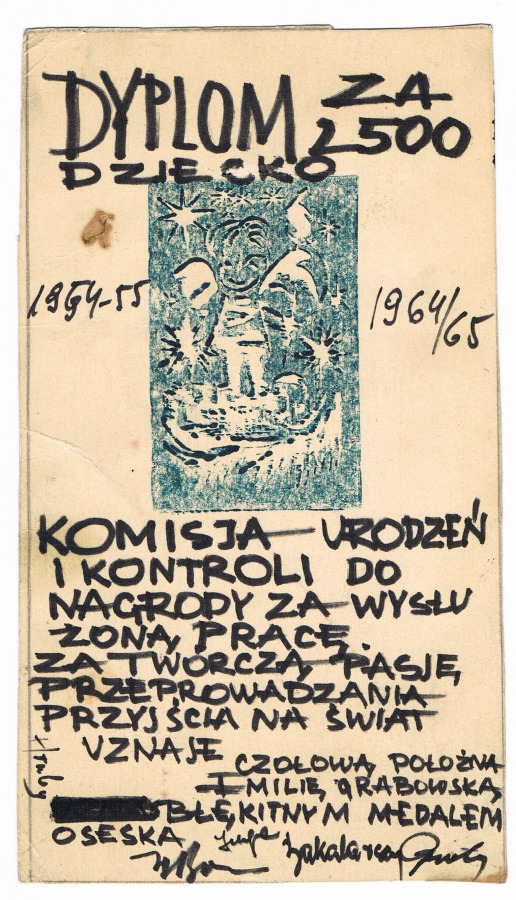 DYPLOM ZA
2500
DZIECKO
1954-55
1964/65
KOMISJA URODZEŃ
I KONTROLI DO
NAGRODY ZA WYSŁU
ŻONĄ PRACĘ
ZA TWÓRCZĄ PASJĘ
PRZEPROWADZANIA
PRZYJŚCIA NA ŚWIAT
UZNAJE
CZOŁOWĄ POŁOŻNA
EMILIĘ GRABOWSKĄ
BŁĘKITNYM MEDALEM
OSESKA